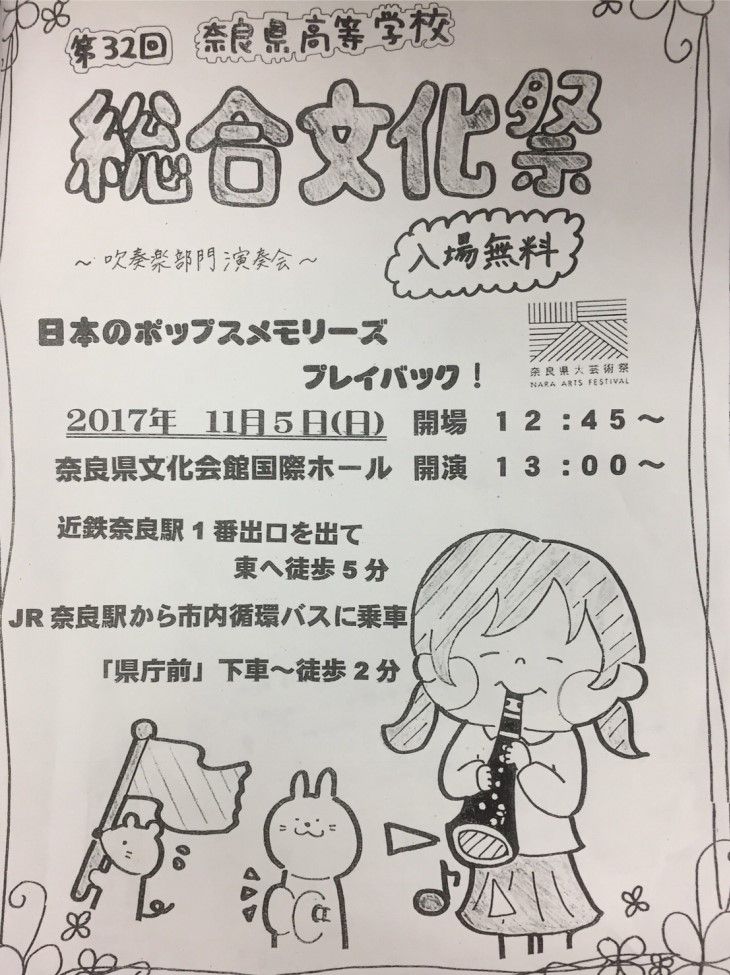 第32回 奈良県高等学校
総合文化祭
～吹奏楽部門演奏会～
入場無料
日本のポップスメモリーズ
プレイバック！
奈良県大芸術祭
NARA ARTS FESTIVAL
2017年 11月5日(日) 開場 12:45～
奈良県文化会館国際ホール 開演 13:00～
近鉄奈良駅1番出口を出て
東へ徒歩5分
JR奈良駅から市内循環バスに乗車
「県庁前」下車～徒歩2分